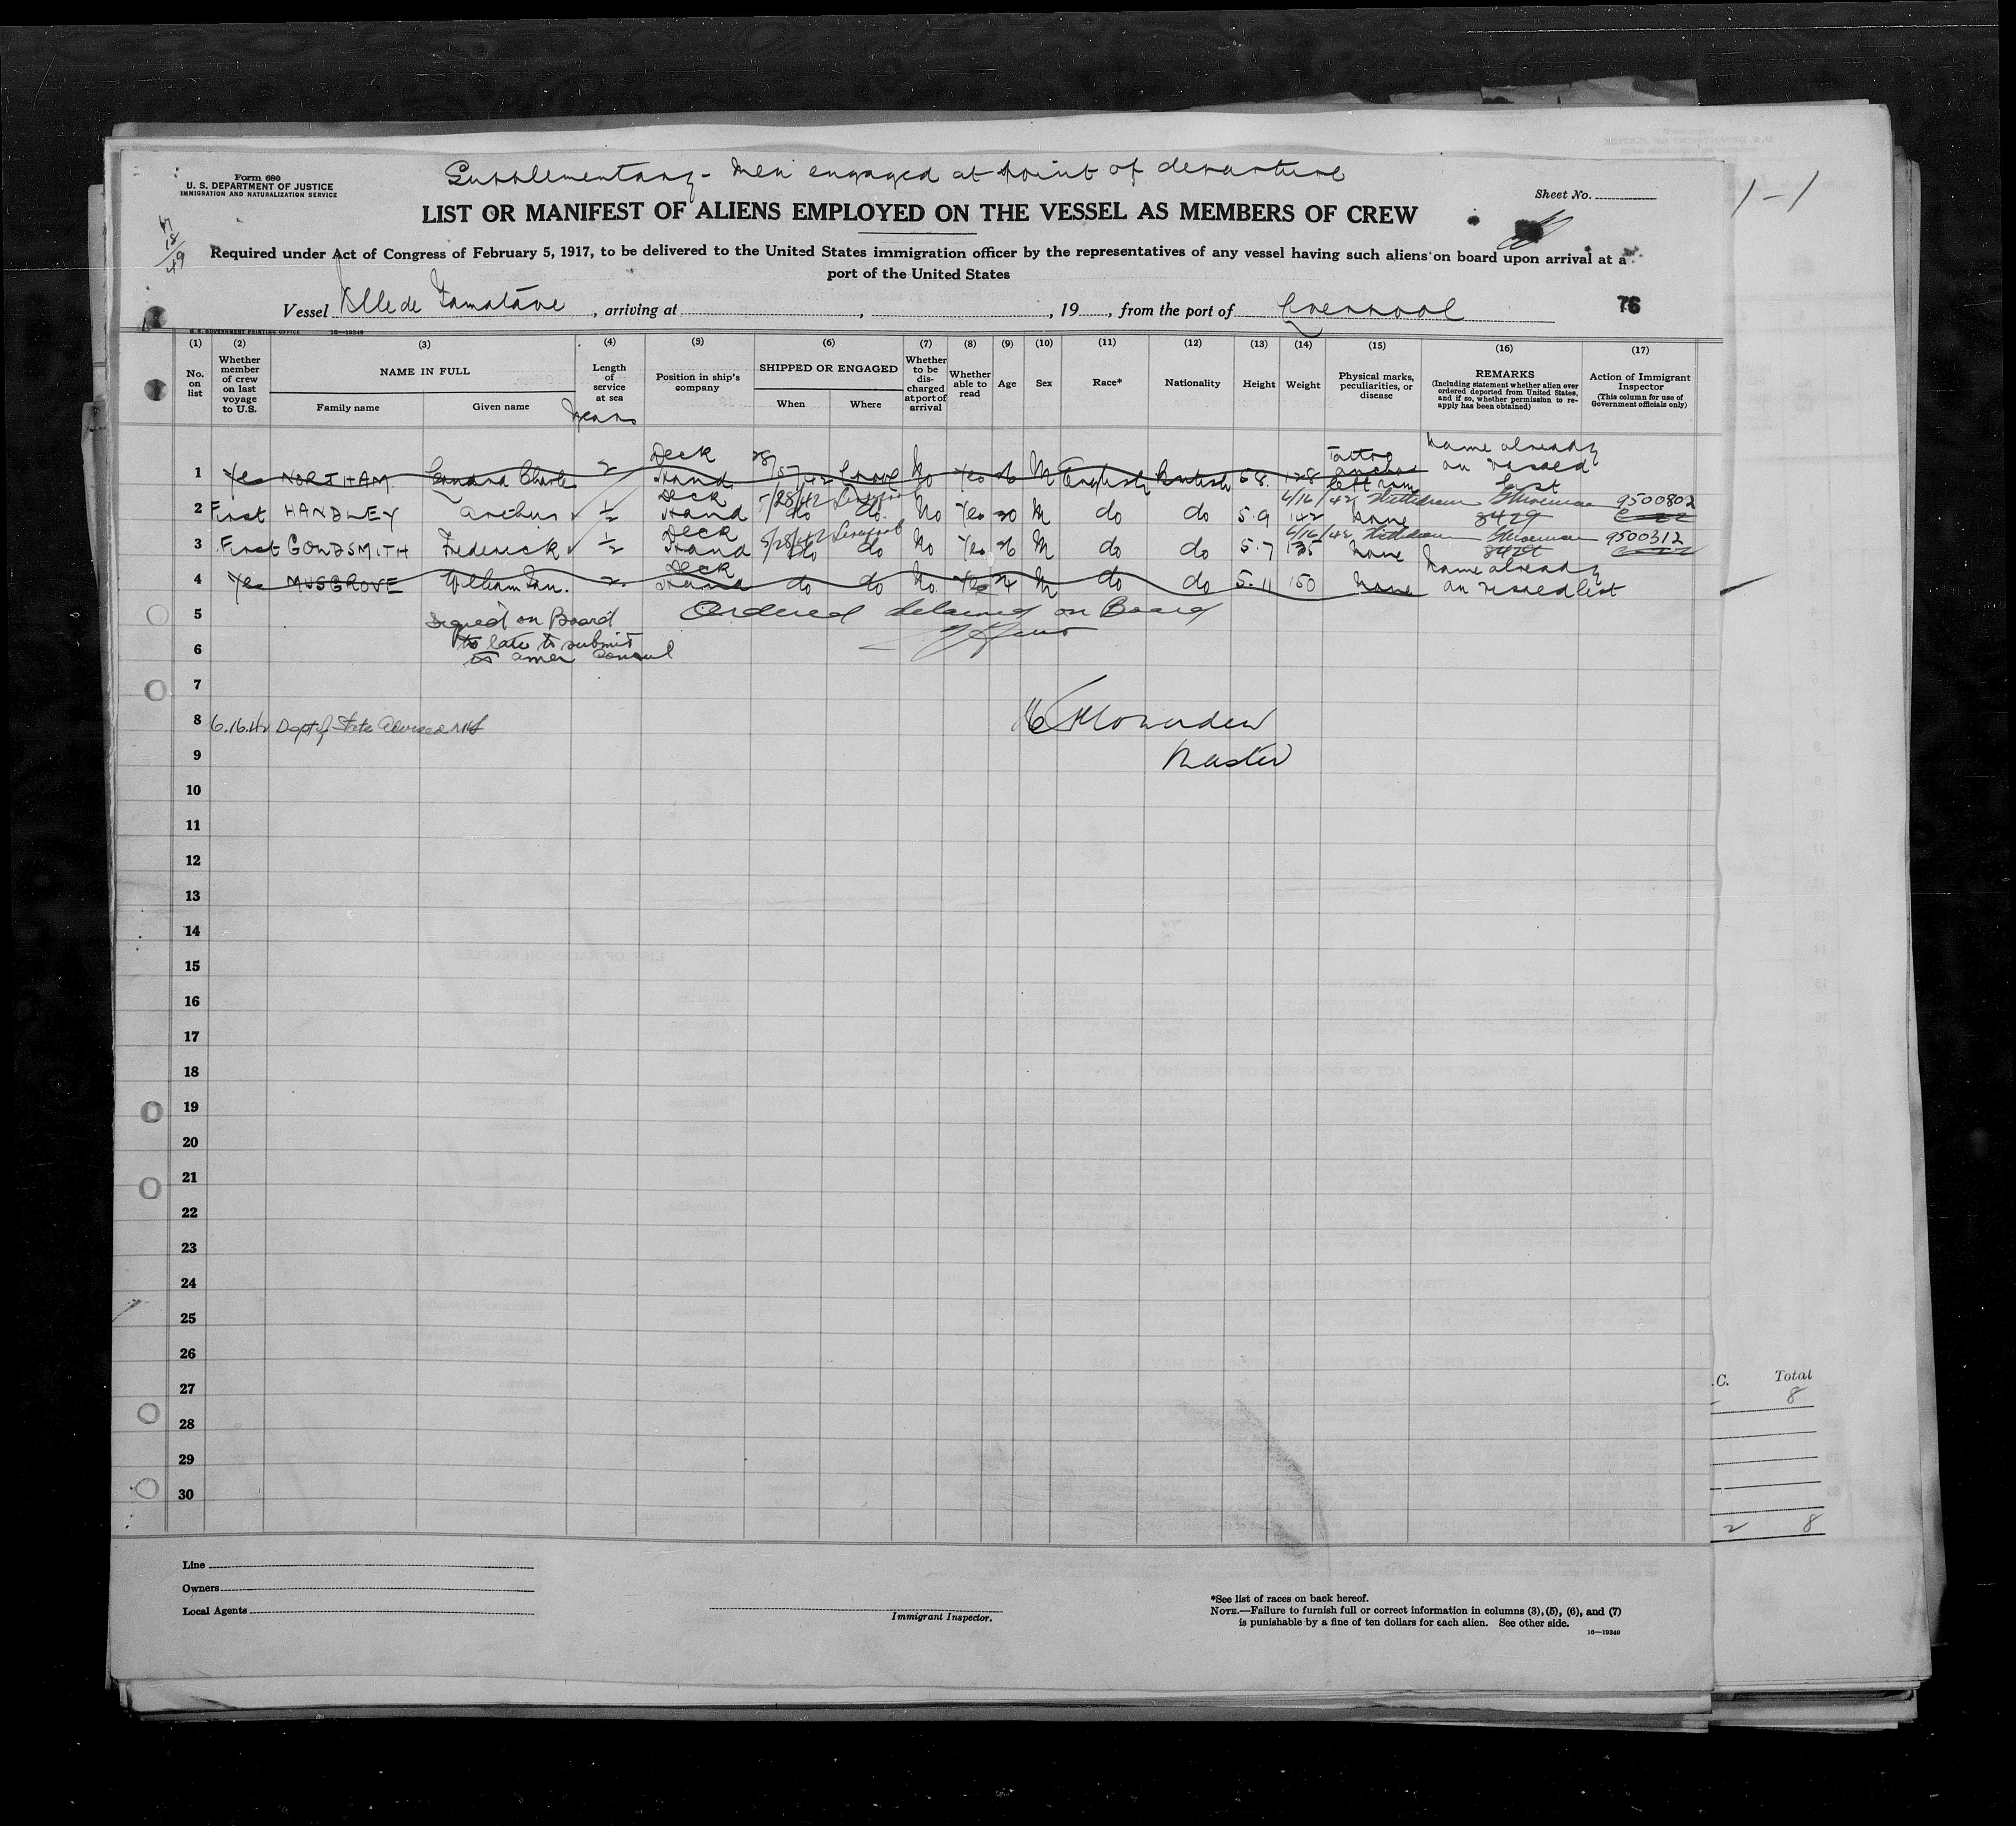 Supplementary - Men engaged at point of departure
Form 680
U. S. DEPARTMENT OF JUSTICE
IMMIGRATION AND NATURALIZATION SERVICE
Sheet No.
1-1
LIST OR MANIFEST OF ALIENS EMPLOYED ON THE VESSEL AS MEMBERS OF CREW
Required under Act of Congress of February 5, 1917, to be delivered to the United States immigration officer by the representatives of any vessel having such aliens on board upon arrival at a
port of the United States
Vessel Ville de Tamatave, arriving at , , 19 , from the port of Liverpool
76
U. S. GOVERNMENT PRINTING OFFICE 16—19349
(1) No. on list
(2) Whether member of crew on last voyage to U.S.
(3) NAME IN FULL Family name Given name
(4) Length of service at sea Years
(5) Position in ship's company
(6) SHIPPED OR ENGAGED When Where
(7) Whether to be discharged at port of arrival
(8) Whether able to read
(9) Age
(10) Sex
(11) Race*
(12) Nationality
(13) Height
(14) Weight
(15) Physical marks, peculiarities, or disease
(16) REMARKS (Including statement whether alien ever ordered deported from United States, and if so, whether permission to reapply has been obtained)
(17) Action of Immigrant Inspector (This column for use of Government officials only)
1 Yes NORTHAM Charles 2 Deck Hand No Yes 26 M English British 5 8 128 Tattoo anchor left arm Name already on vessel list
2 First HANDLEY Arthur ½ Deck Hand 5/28/42 Liverpool do do No Yes 20 M do do 5.9 142 None 6/16/42 8429 9500802
3 First GOLDSMITH Frederick ½ Deck Hand 5/28/42 Liverpool do do No Yes 26 M do do 5.7 135 None 6/16/42 8429 9500312
4 Yes MUSGROVE William Ian. 2 Deck Hand do do No Yes M do do 5.11 150 None Name already on vessel list
5 Signed on Board Ordered detained on Board
to late to submit
6 to Amer Consul
7
8 6.16.42 Dept of State advised
Master
9
10
11
12
13
14
15
16
17
18
19
20
21
22
23
24
25
26
27
28
29
30
.C. Total
8
2 8
Line
Owners
Local Agents
Immigrant Inspector.
*See list of races on back hereof.
NOTE.—Failure to furnish full or correct information in columns (3), (5), (6), and (7)
is punishable by a fine of ten dollars for each alien. See other side.
16—19349